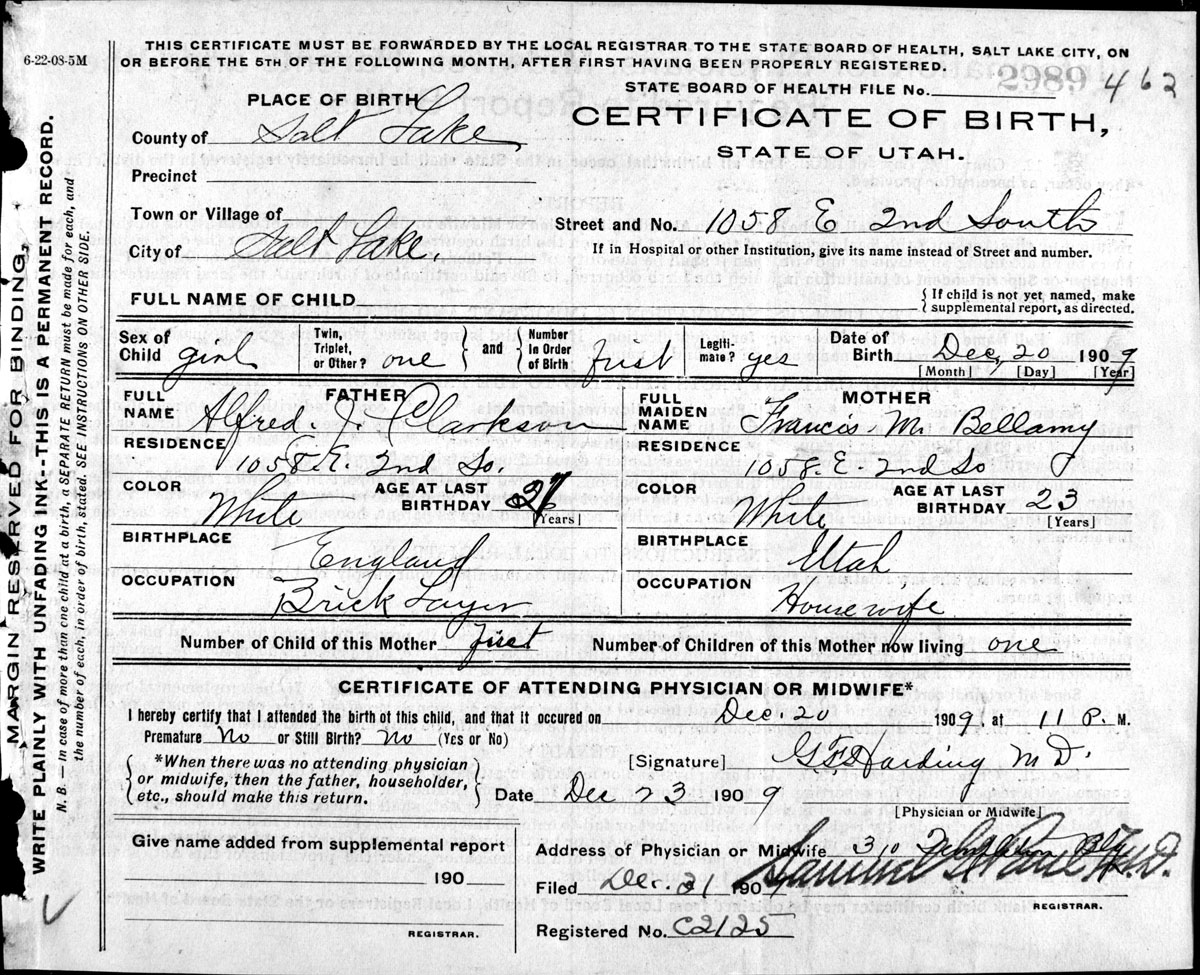 6-22-08-5M
THIS CERTIFICATE MUST BE FORWARDED BY THE LOCAL REGISTRAR TO THE STATE BOARD OF HEALTH, SALT LAKE CITY, ON
OR BEFORE THE 5TH OF THE FOLLOWING MONTH, AFTER FIRST HAVING BEEN PROPERLY REGISTERED.
STATE BOARD OF HEALTH FILE No. 2989 462
PLACE OF BIRTH
CERTIFICATE OF BIRTH,
STATE OF UTAH.
County of Salt Lake
Precinct
Town or Village of
Street and No. 1058 E 2nd South
City of Salt Lake.
If in Hospital or other institution, give its name instead of Street and number.
FULL NAME OF CHILD
{ If child is not yet named, make
supplemental report, as directed.
Sex of Child girl
Twin, Triplet, or Other? one } and { Number in Order of Birth first
Legitimate? yes
Date of Birth Dec, 20 1909
[Month] [Day] [Year]
FATHER
FULL NAME Alfred. J. Clarkson
RESIDENCE
1058 E. 2nd So.
COLOR White
AGE AT LAST BIRTHDAY 27
[Years]
BIRTHPLACE England
OCCUPATION Brick Layer
MOTHER
FULL MAIDEN NAME Francis M. Bellamy
RESIDENCE
1058. E. 2nd So
COLOR White
AGE AT LAST BIRTHDAY 23
[Years]
BIRTHPLACE Utah
OCCUPATION Housewife
Number of Child of this Mother first Number of Children of this Mother now living one
CERTIFICATE OF ATTENDING PHYSICIAN OR MIDWIFE*
I hereby certify that I attended the birth of this child, and that it occured on Dec. 20 1909, at 11 P. M.
Premature No or Still Birth? No (Yes or No)
*When there was no attending physician
or midwife, then the father, householder,
etc., should make this return.
[Signature] Harding M D.
Date Dec 23 1909
[Physician or Midwife]
Give name added from supplemental report
190
REGISTRAR.
Address of Physician or Midwife 310
Filed Dec. 31 1909 Samuel
REGISTRAR.
Registered No. C2125
MARGIN RESERVED FOR BINDING,
WRITE PLAINLY WITH UNFADING INK--THIS IS A PERMANENT RECORD.
N. B. — In case of more than one child at a birth, a SEPARATE RETURN must be made for each, and
the number of each, in order of birth, stated. SEE INSTRUCTIONS ON OTHER SIDE.